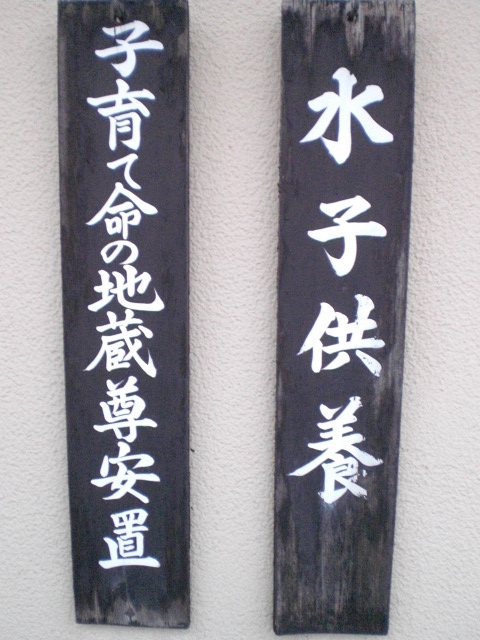 水子供養
子育て命の地蔵尊安置